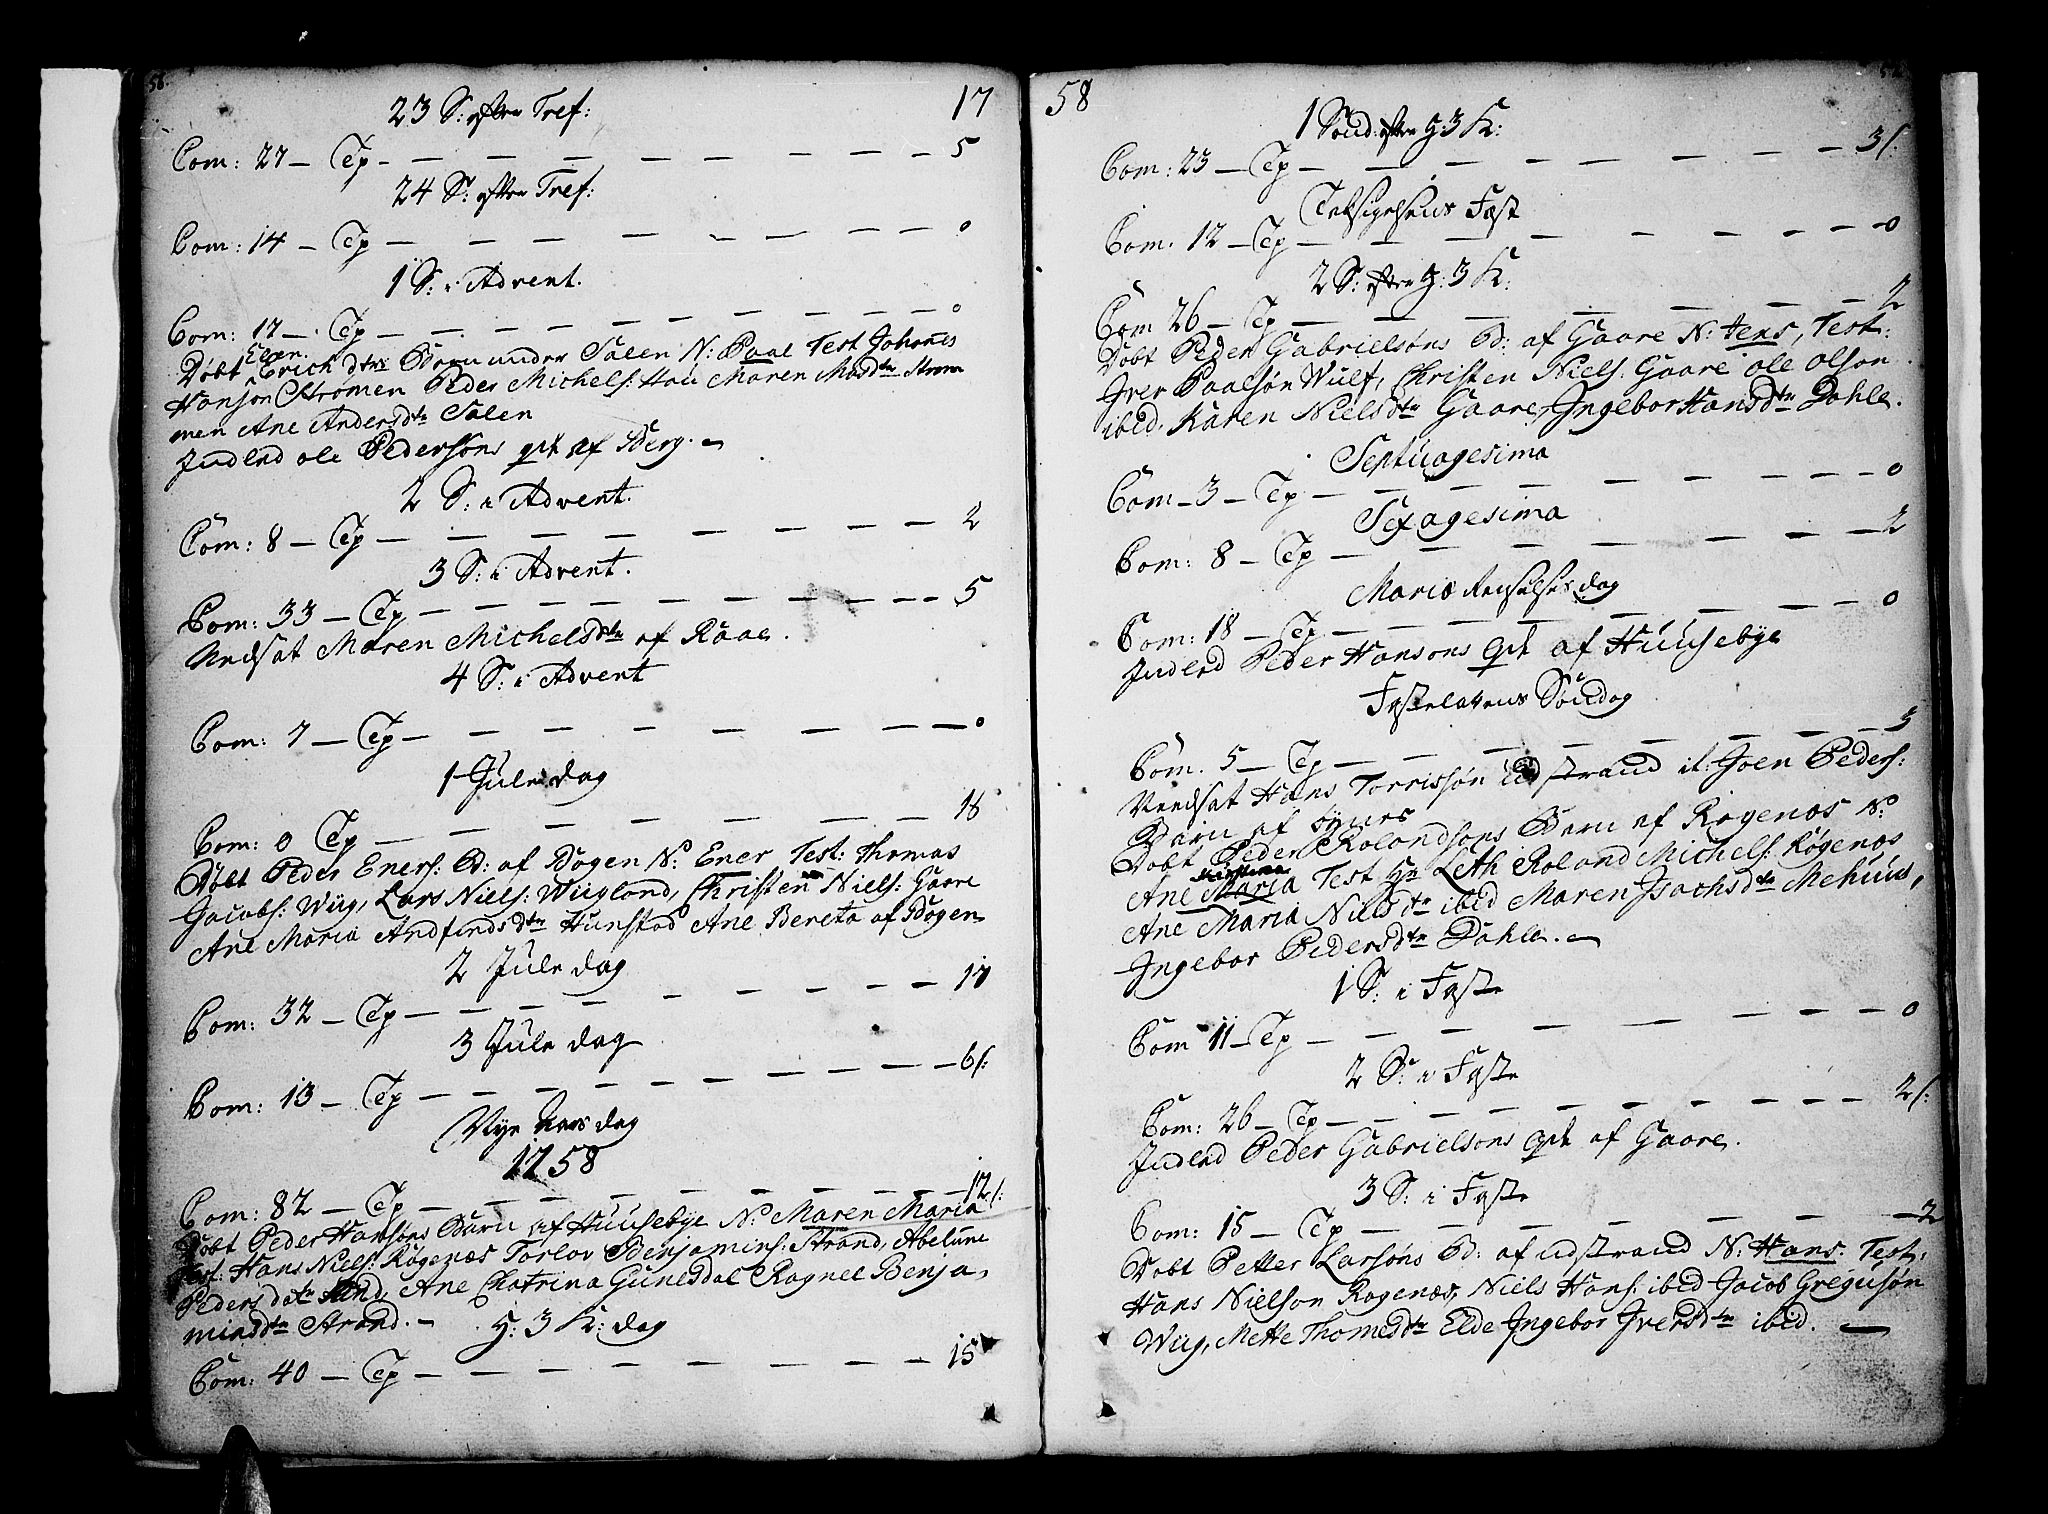 17
23 S: efter Tref:
Com: 27 — Tp — — — — — — — — 5
24 S: efter Tref:
Com: 14 — Tp — — — — — — — — 0
1 S: i Advent.
Com: 17 — Tp — — — — — — — — 0
Elen
Døbt Erich dtrs Barn under Salen N: Paal Test Johanes
Hansøn Strømen Peder Michels: Hou Maren Masdtr Strøm
men Ane Andersdtr Salen
Indled ole Pedersøns qvt af Berg. —
2 S: i Advent.
Com: 8 — Tp — — — — — — — — 2
3 S: i Advent.
Com: 33 — Tp — — — — — — — — 5
Undsat Maren Michelsdtr af Raae.
4 S: i Advent
Com: 7 — Tp — — — — — — — — 0
1 Juledag
Com: 0 Tp — — — — — — — 18
Døbt Peder Eners: B: af Bogen N: Ener Test: Thomas
Jacobs: Wiig, Lars Niels: Wiiglond, Christen Niels: Gaare
Ane Maria Andfindsdtr Hunstad Ane Bereta af Bogen
2 Jule dag
Com: 32 — Tp — — — — — — — — 17
3 Jule dag
Com: 13 — Tp — — — — — — — — 6/:
Nye Aars dag
1758
Com: 82 — Tp — — — — — — — — 12/:
Døbt Peder Hansøns Barn af Huusebye N: Maren Maria
Test: Hans Niels: Køgenæs Torlov Benjamins: Strand, Abelune
Peders datr, Ane Chatrina Gunesdal Ragnel Benja-
minsdtr Strand. —
H: 3 K: dag
Com: 40 — Tp — — — — — — — — 15
58
1 Sønd: efter H: 3 K:
Com: 23 — Tp — — — — — — — — 3/:
Taksigelsens Fæst
Com: 12 — Tp — — — — — — — — 0
2 S: efter H: 3 K:
Com 26 — Tp — — — — — — — — 2
Døbt Peder Gabrielsøns B: af Gaare N: Jens, Test:
Iver Paalsøn Wulf, Christen Niels: Gaare ole olson
ibid. Karen Nielsdtr Gaare, Ingebor Hansdtr Dahle.
Septuagesima
Com — 3 — Tp — — — — — — — — 0
Sexagesima
Com: 8 — Tp — — — — — — — — 2
Mariæ Renselses dag
Com: 18 — Tp — — — — — — — — 0
Indled Peder Hansons qvt af Huusebye
Fastelavens Søndag
Com. 5 — Tp — — — — — — — — 5
Undsat Hans Torrissøn udstrand it: Joen Peders:
Barn af Synes
Døbt Peder Rolandsons Barn af Rogenæs N:
Kirstina
Ane Maria Test Hr Leth Roland Michels: Køgenæs
Ane Maria Nielsdtr ibid Maren Isachsdtr Mehuus,
Ingebor Pedersdtr Dahle. —
1 S: i Faste
Com 11 — Tp — — — — — — — — 0
2 S: i Faste
Com: 26 — Tp — — — — — — — — 2/:
Indled Peder Gabrielsons qvt af Gaare.
3 S: i Faste
Com: 15 — Tp — — — — — — — — 2
Døbt Petter Larsøns B: af udstrand N: Hans: Test:
Hans Nielson Rogenæs, Niels Hans: ibid Jacob Gregusøn
Wiig, Mette Thomesdtr Elde Ingebor Iversdtr ibid. —